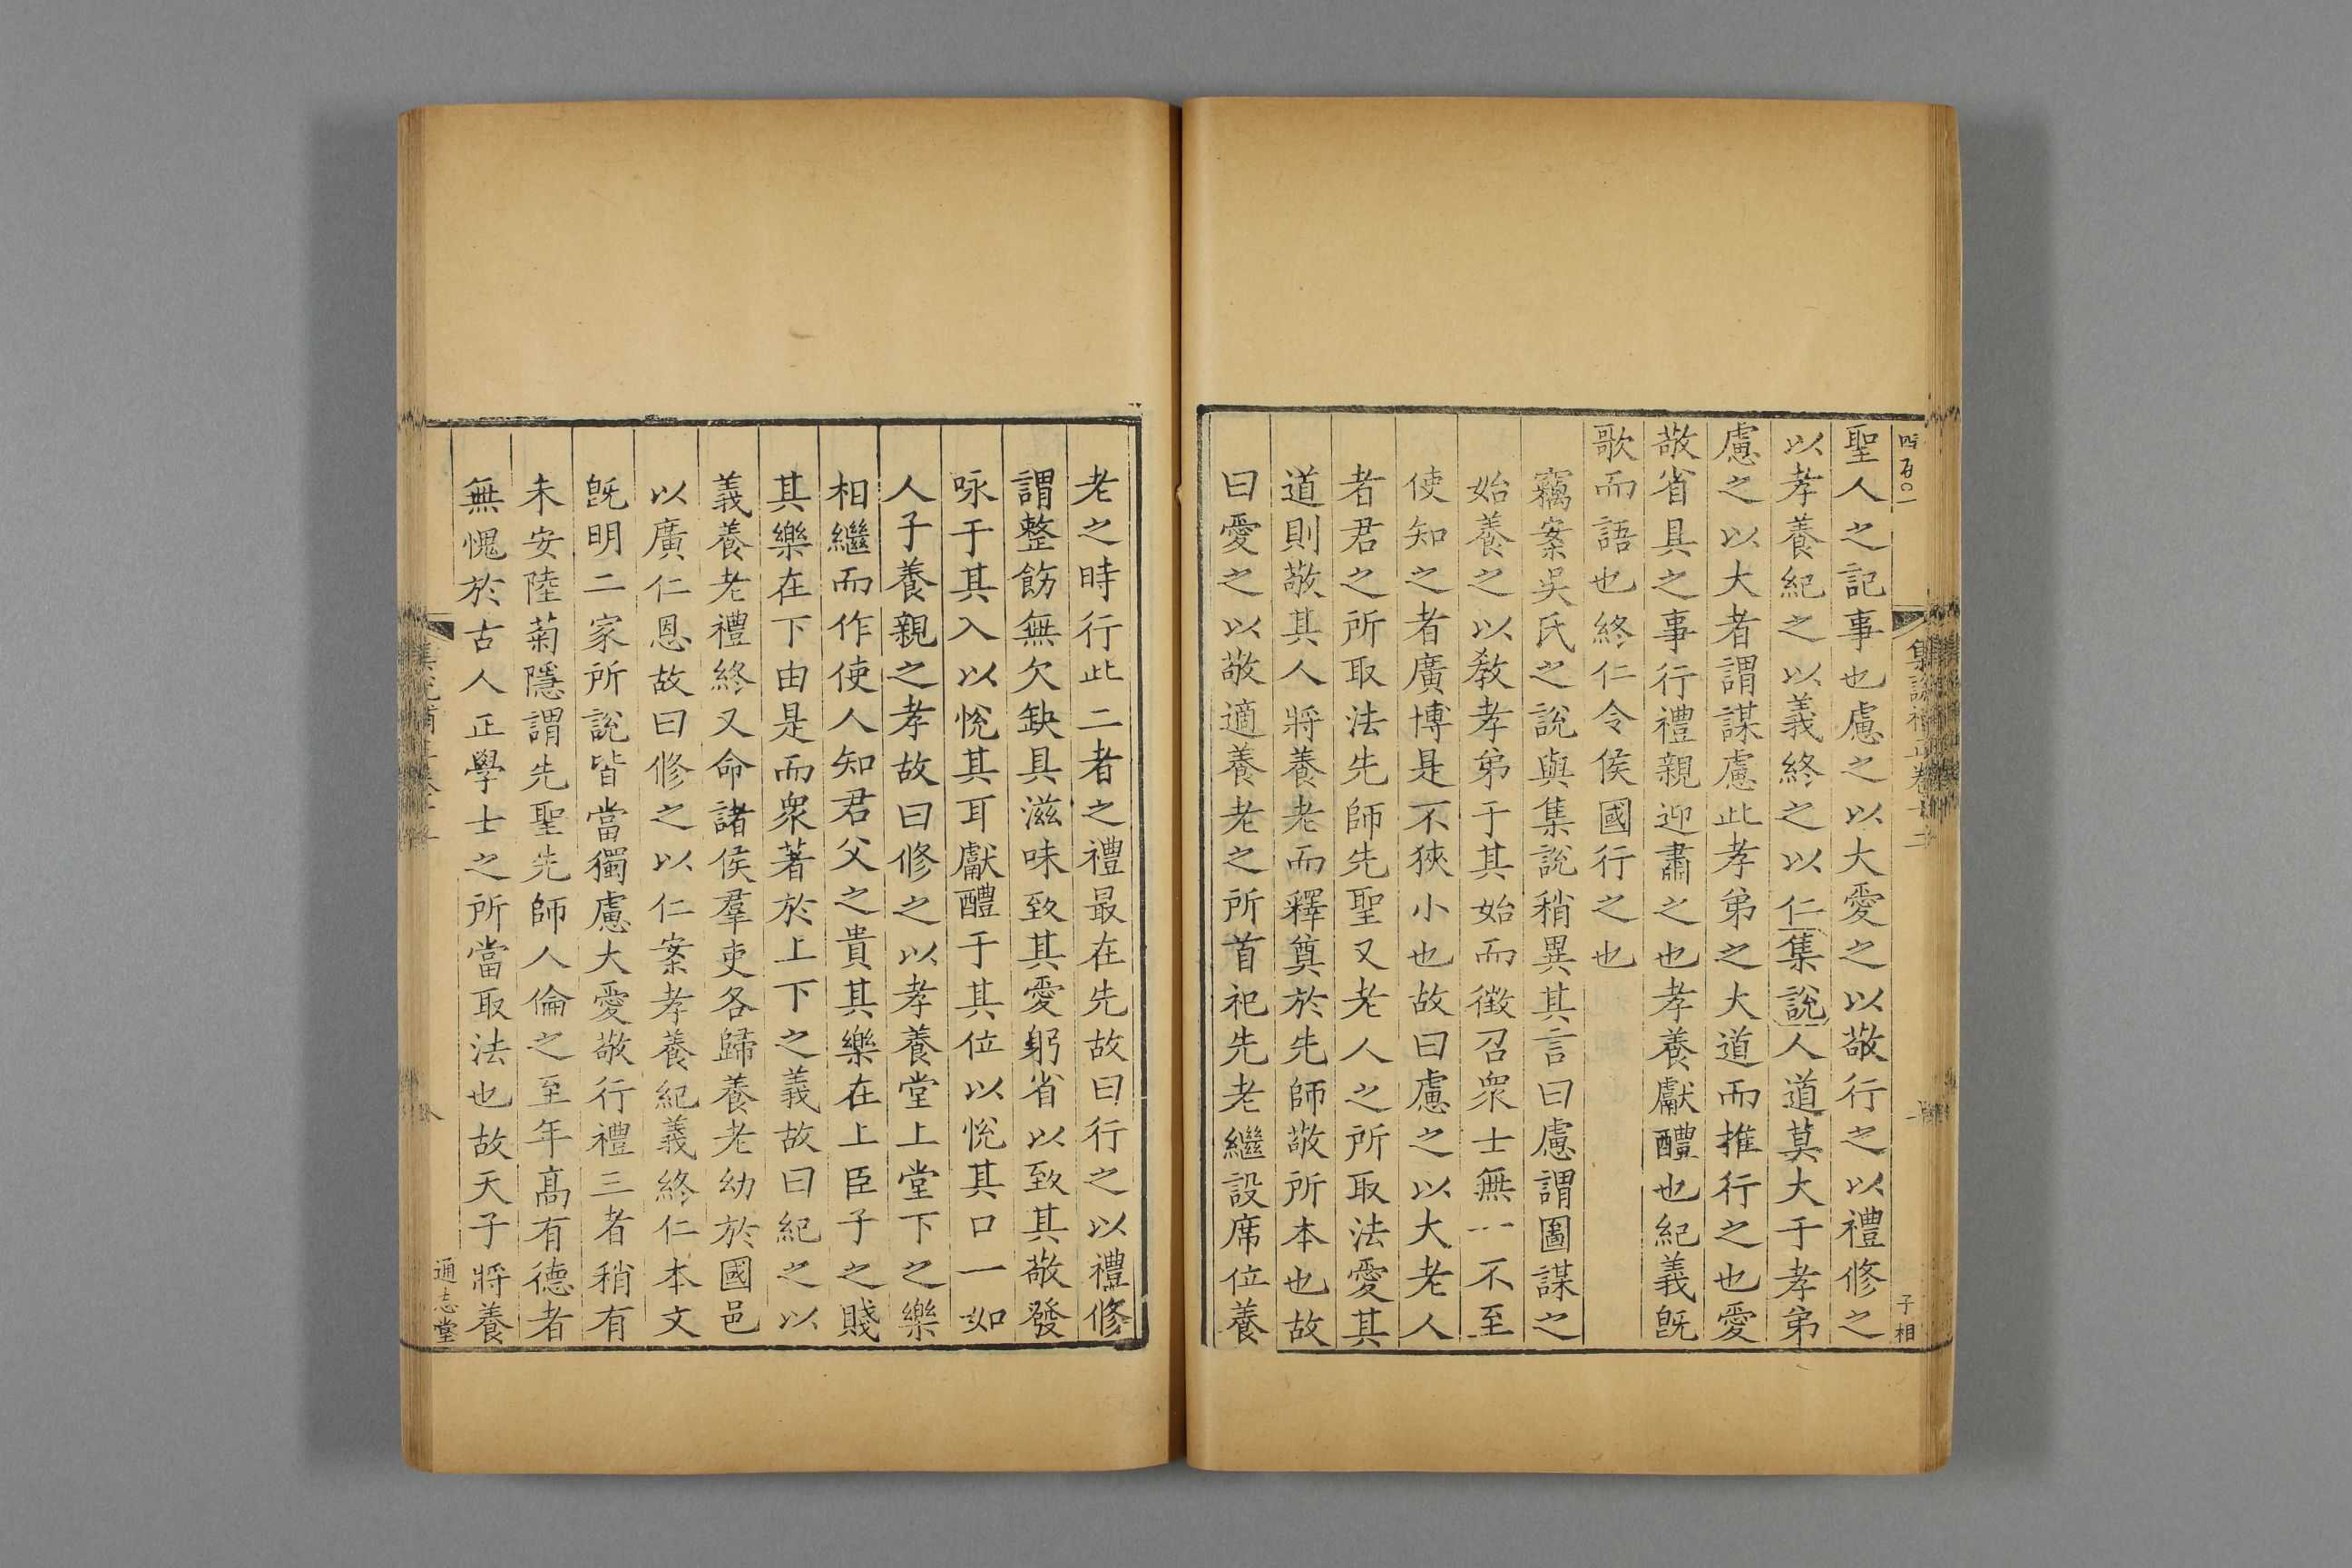 四百〇一
子相
聖人之記事也慮之以大愛之以敬行之以禮修之
以孝養紀之以義終之以仁集說人道莫大于孝弟
慮之以大者謂謀慮此孝弟之大道而推行之也愛
敬省具之事行禮親迎肅之也孝養獻醴也紀義旣
歌而語也終仁令侯國行之也
竊案吳氏之說與集說稍異其言曰慮謂圖謀之
始養之以敎孝弟于其始而徴召衆士無一不至
使知之者廣博是不狹小也故曰慮之以大老人
者君之所取法先師先聖又老人之所取法愛其
道則敬其人將養老而釋奠於先師敬所本也故
曰愛之以敬適養老之所首祀先老繼設席位養
老之時行此二者之禮最在先故曰行之以禮修
謂整飭無欠缺具滋味致其愛躬省以致其敬發
咏于其入以悅其耳獻醴于其位以悅其口一如
人子養親之孝故曰修之以孝養堂上堂下之樂
相繼而作使人知君父之貴其樂在上臣子之賤
其樂在下由是而衆著於上下之義故曰紀之以
義養老禮終又命諸侯羣吏各歸養老幼於國邑
以廣仁恩故曰修之以仁案孝養紀義終仁本文
旣明二家所說皆當獨慮大愛敬行禮三者稍有
未安陸菊隱謂先聖先師人倫之至年高有德者
無愧於古人正學士之所當取法也故天子將養
通志堂